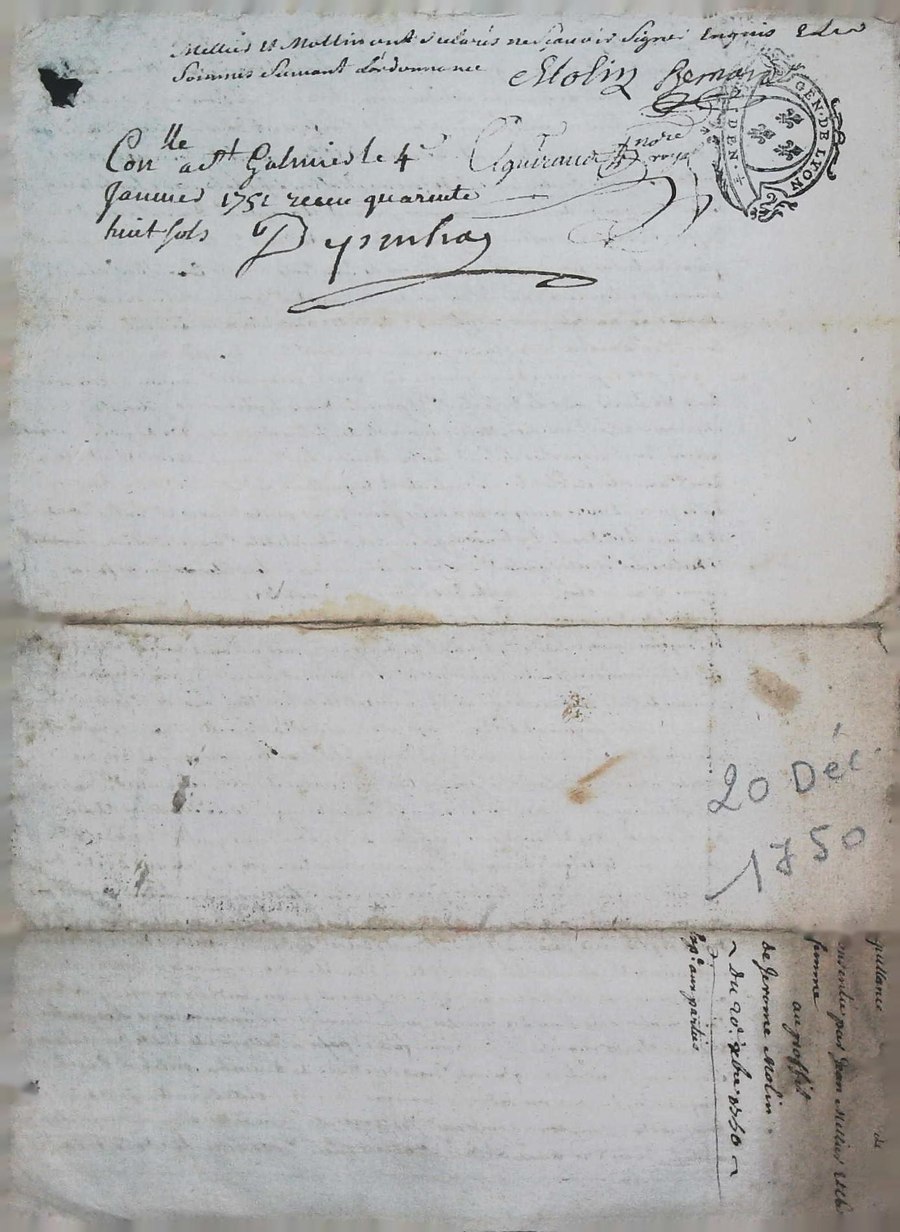 Mellier et Mollin ont declarés ne sçavoir signer Enquis Et
Sommés Suivant L'ordonnance
Molin Bernard
GEN·DE·LYON
Con.lle a St Galmier le 4e
Janvier 1751 receu quarente
huit sols
20 Déc.
1750
quittance de
consentie par Jean Mellier
femme
au proffit
de Jerome Molin.
Du 20e. xbre. 1750
Exp.on aux parties